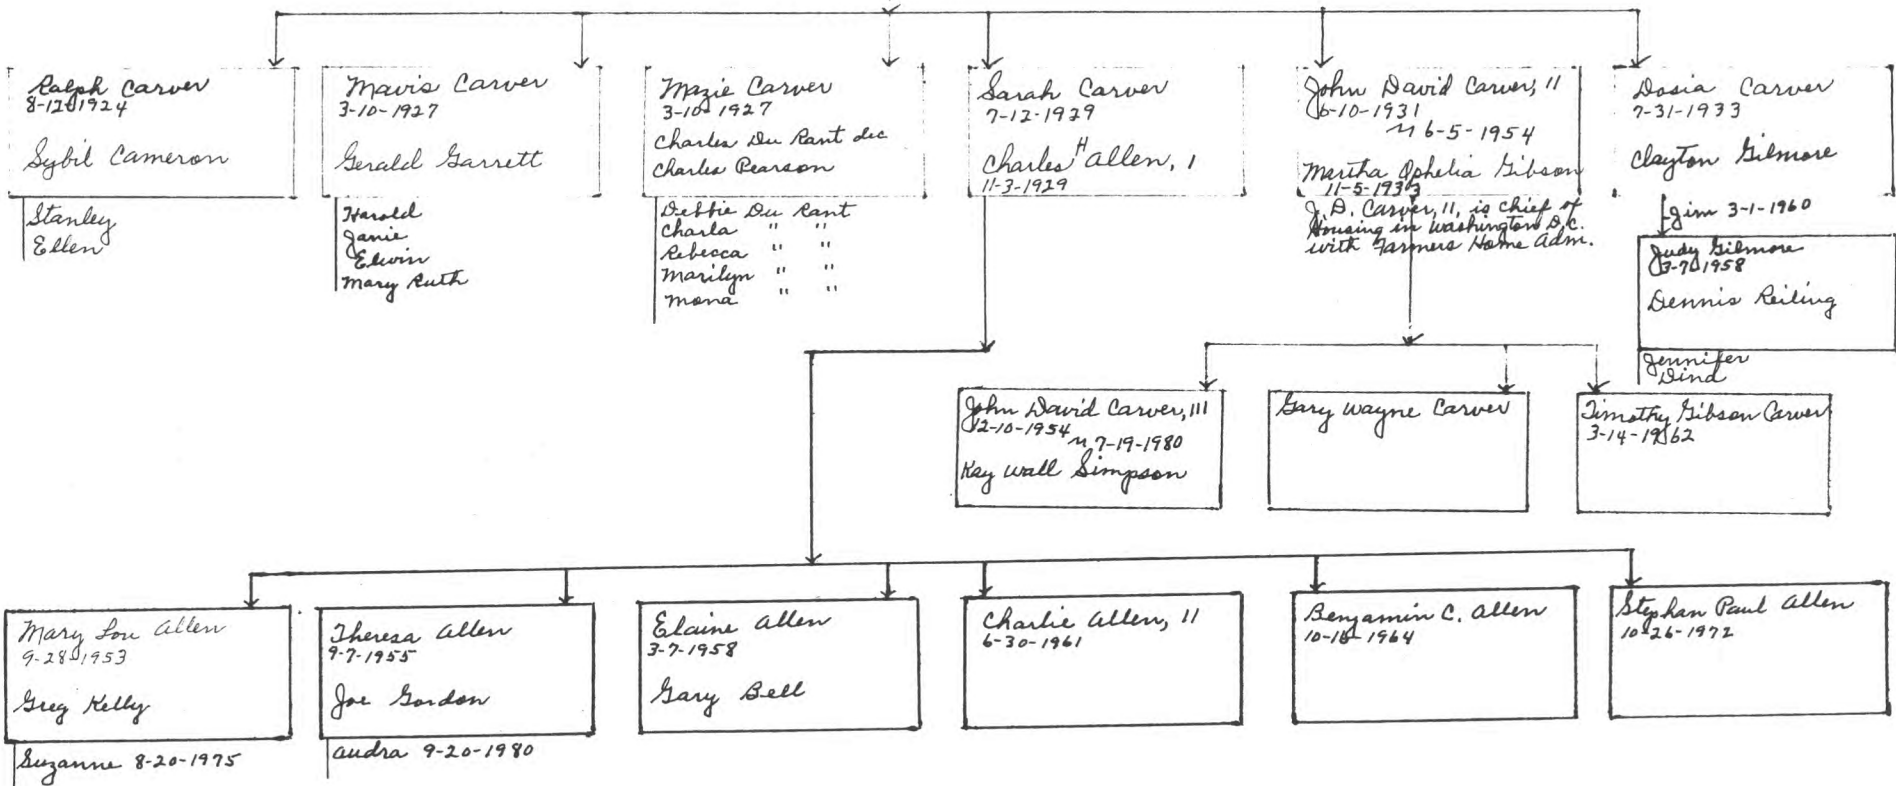 Ralph Carver
8-12-1924
Sybil Cameron
Stanley
Ellen
Mavis Carver
3-10-1927
Gerald Garrett
Harold
Janie
Elwin
Mary Ruth
Mazie Carver
3-10-1927
Charles Du Rant dec
Charles Pearson
Debbie Du Rant
Charla " "
Rebecca " "
Marilyn " "
Mona " "
Sarah Carver
7-12-1929
Charles H Allen, I
11-3-1929
John David Carver, II
6-10-1931
m 6-5-1954
Martha Ophelia Gibson
11-5-1933
J. D. Carver, II, is chief of
Housing in Washington D.C.
with Farmers Home Adm.
Dosia Carver
7-31-1933
Clayton Gilmore
Jim 3-1-1960
Judy Gilmore
3-7-1958
Dennis Reiling
Jennifer
John David Carver, III
12-10-1954
m 7-19-1980
Kay Wall Simpson
Gary Wayne Carver
Timothy Gibson Carver
3-14-1962
Mary Lou Allen
9-28-1953
Greg Kelly
Suzanne 8-20-1975
Theresa Allen
9-7-1955
Joe Gordon
Audra 9-20-1980
Elaine Allen
3-7-1958
Gary Bell
Charlie Allen, II
6-30-1961
Benjamin C. Allen
Stephan Paul Allen
10-26-1972